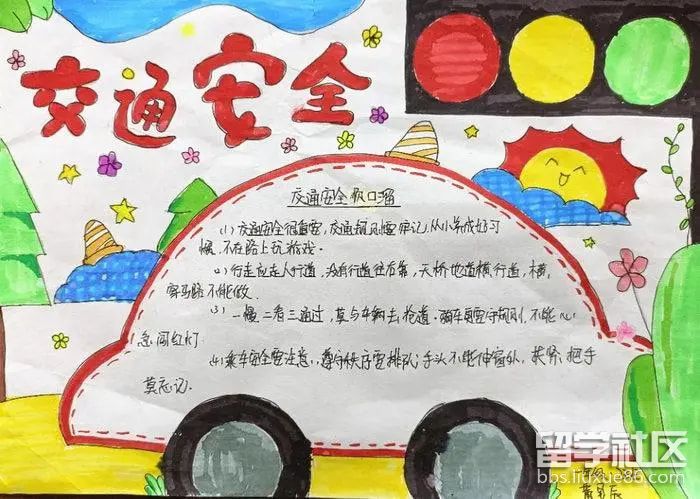 交通安全
交通安全顺口溜
(1) 交通安全很重要,交通规则要牢记,从小养成好习
惯,不在路上玩游戏。
(2) 行走应走人行道,没有行道往右靠,天桥地道横行道,横
穿马路不能做.
(3) 一慢二看三通过,莫与车辆去抢道.骑车更要守规则,不能心
急闯红灯
(4) 乘车安全要注意,遵守秩序要排队;手头不能伸窗外,扶紧把手
莫忘记.
留学社区
bbs.liuxue86.com